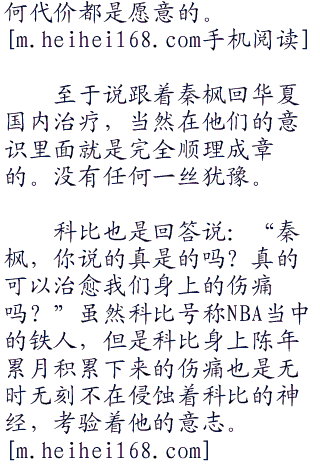 何代价都是愿意的。
[m.heihei168.com手机阅读]
至于说跟着秦枫回华夏
国内治疗，当然在他们的意
识里面就是完全顺理成章
的。没有任何一丝犹豫。
科比也是回答说：“秦
枫，你说的真是的吗？真的
可以治愈我们身上的伤痛
吗？”虽然科比号称NBA当中
的铁人，但是科比身上陈年
累月积累下来的伤痛也是无
时无刻不在侵蚀着科比的神
经，考验着他的意志。
[m.heihei168.com]